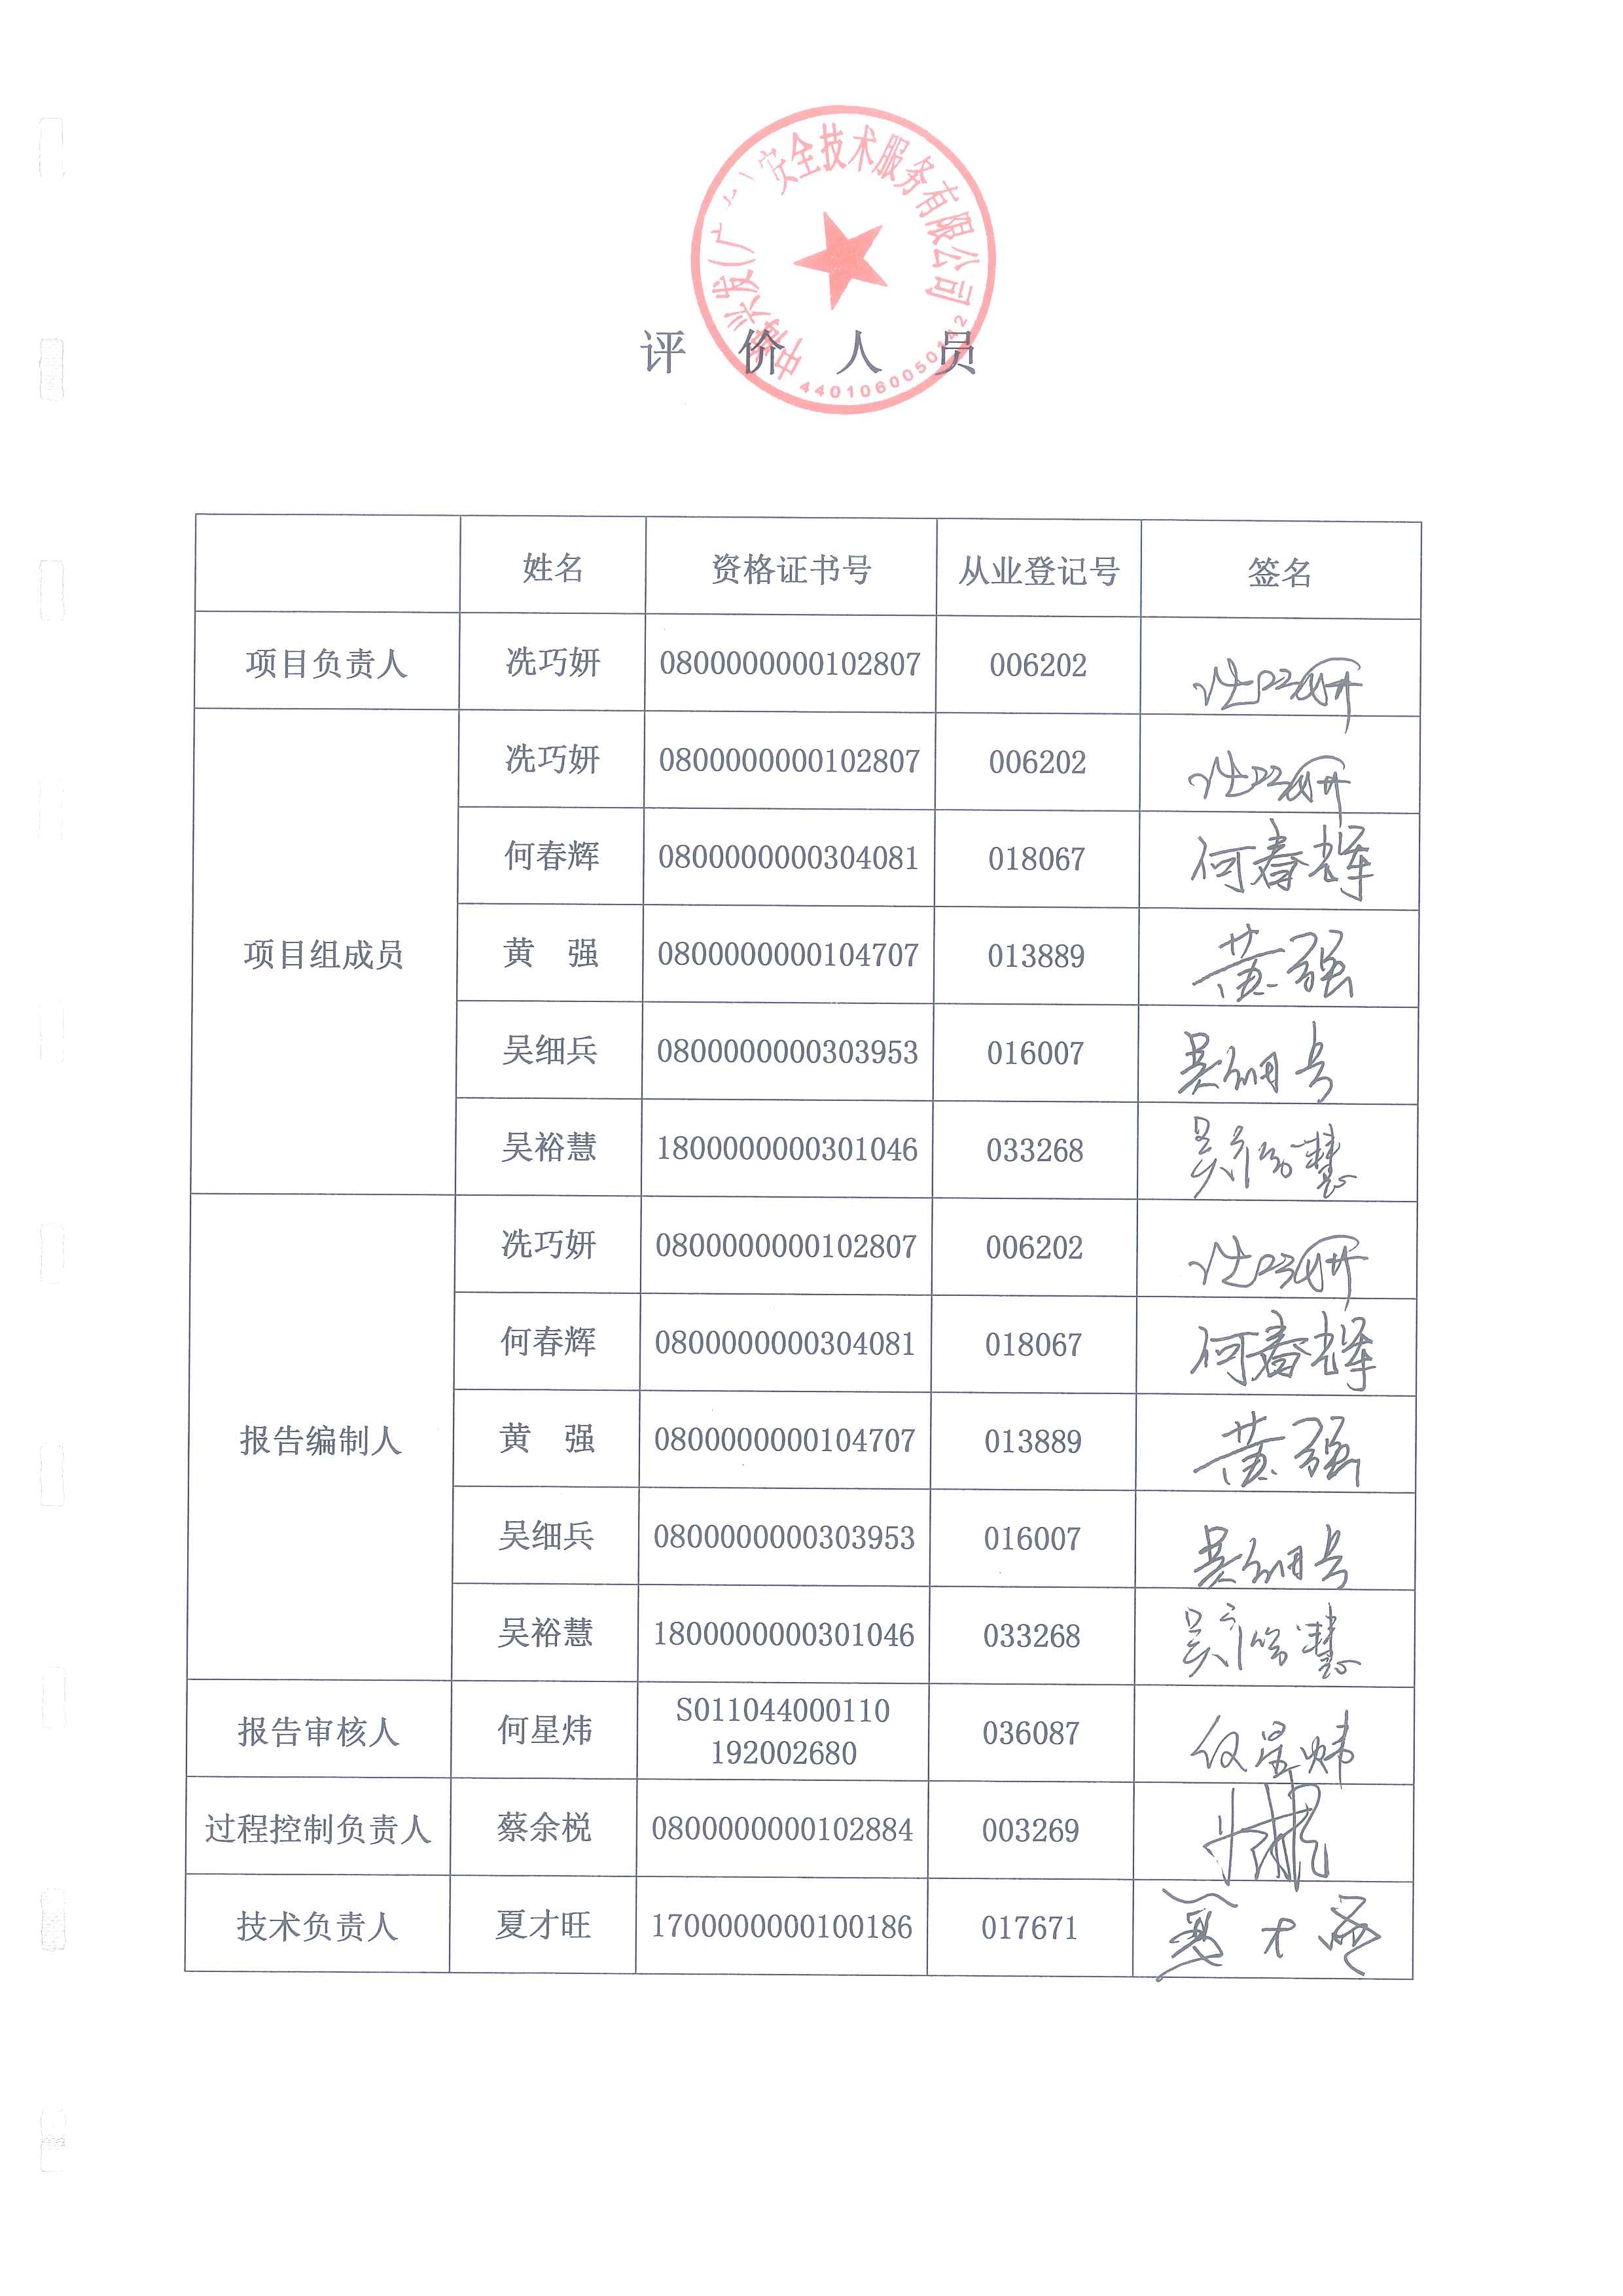 安全技术服务有限公司
评 价 人 员
姓名 资格证书号 从业登记号 签名
项目负责人 冼巧妍 0800000000102807 006202 冼巧妍
项目组成员 冼巧妍 0800000000102807 006202 冼巧妍
何春辉 0800000000304081 018067 何春辉
黄 强 0800000000104707 013889 黄强
吴细兵 0800000000303953 016007 吴细兵
吴裕慧 1800000000301046 033268 吴裕慧
报告编制人 冼巧妍 0800000000102807 006202 冼巧妍
何春辉 0800000000304081 018067 何春辉
黄 强 0800000000104707 013889 黄强
吴细兵 0800000000303953 016007 吴细兵
吴裕慧 1800000000301046 033268 吴裕慧
报告审核人 何星炜 S011044000110
192002680 036087 何星炜
过程控制负责人 蔡余棁 0800000000102884 003269
技术负责人 夏才旺 1700000000100186 017671 夏才旺